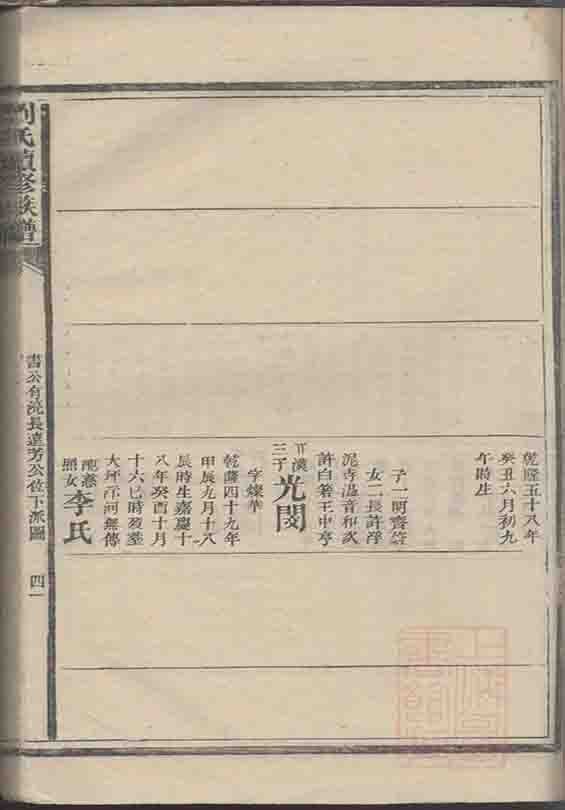 乾隆五十八年
癸丑六月初九
午時生
子一明齋
女二長許浮
泥寺溫音和次
許白箬王中亭
三子
光閔
字燦華
乾隆四十九年
甲辰九月十八
辰時生嘉慶十
八年癸酉十月
十六巳時歿塟
大坪河無傳
照女
李氏
劉氏續修族譜
公有洸長達芳公位下派圖
四一